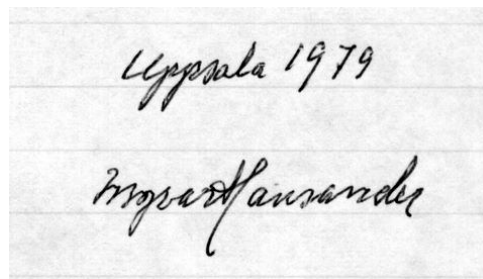 Uppsala 1979
Ingvar Hansander